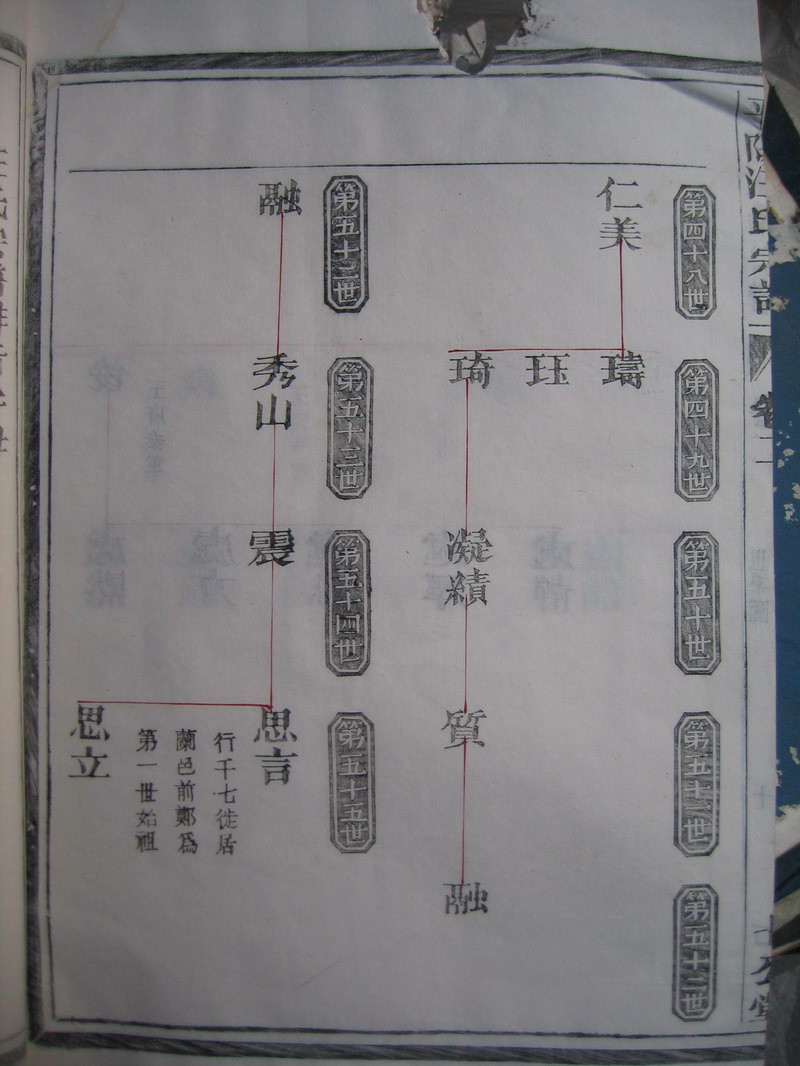 平陽汪氏宗譜
卷二
第四十八世
仁美
第四十九世
璹
珏
琦
第五十世
凝績
第五十一世
質
第五十二世
融
第五十二世
融
第五十三世
秀山
第五十四世
震
第五十五世
思言
行千七徙居
蘭邑前鄭為
第一世始祖
思立